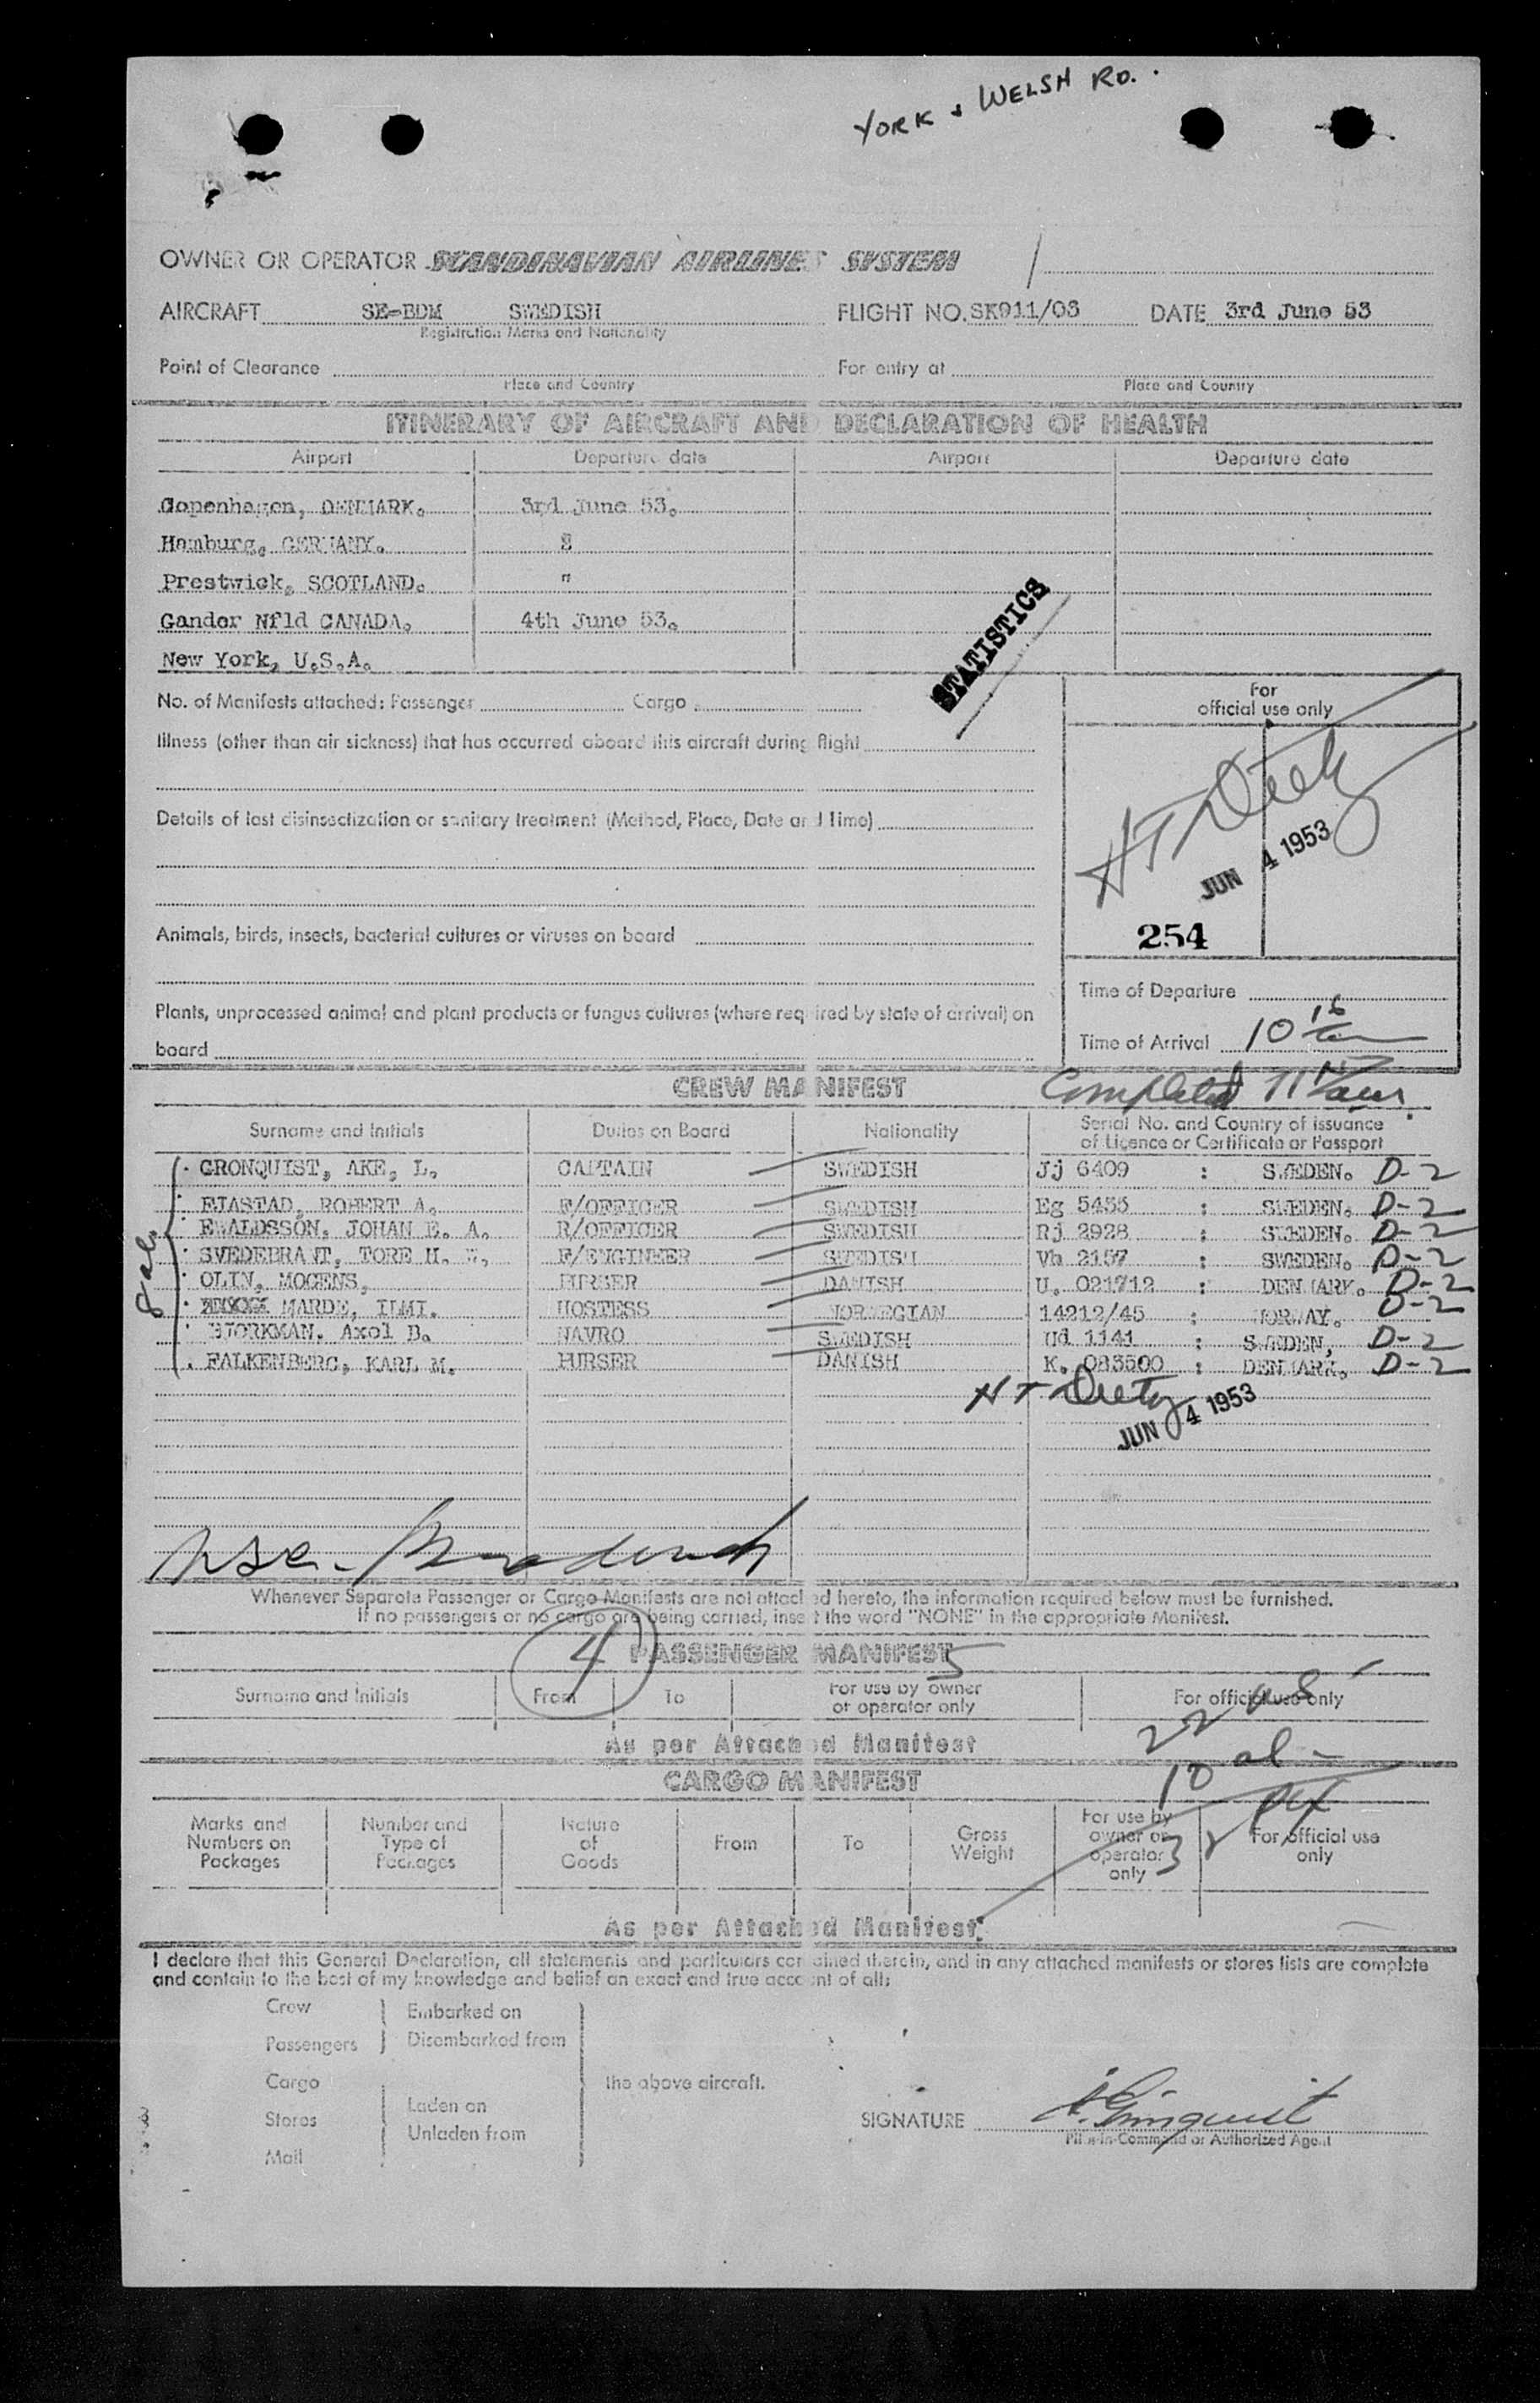 YORK & WELSH RD.
OWNER OR OPERATOR SCANDINAVIAN AIRLINES SYSTEM
AIRCRAFT SE-BDM SWEDISH FLIGHT NO. SK911/03 DATE 3rd June 53
Registration Marks and Nationality
Point of Clearance For entry at
Place and Country Place and Country
ITINERARY OF AIRCRAFT AND DECLARATION OF HEALTH
Airport Departure date Airport Departure date
Copenhagen, DENMARK. 3rd June 53.
Hamburg, GERMANY.
Prestwick, SCOTLAND. "
Gander Nfld CANADA. 4th June 53.
New York, U.S.A.
STATISTICS
No. of Manifests attached: Passenger Cargo
For
official use only
Illness (other than air sickness) that has occurred aboard this aircraft during flight
Details of last disinsectization or sanitary treatment (Method, Place, Date and Time)
JUN 4 1953
Animals, birds, insects, bacterial cultures or viruses on board
254
Time of Departure
Plants, unprocessed animal and plant products or fungus cultures (where required by state of arrival) on
board
Time of Arrival 10 16
CREW MANIFEST Completed 11
Surname and Initials Duties on Board Nationality Serial No. and Country of issuance
of Licence or Certificate or Passport
GRONQUIST, AKE, L. CAPTAIN SWEDISH Jj 6409 : SWEDEN. D-2
FJASTAD, ROBERT A. F/OFFICER SWEDISH Eg 5455 : SWEDEN. D-2
EWALDSSON, JOHAN E. A. R/OFFICER SWEDISH Rj 2928 : SWEDEN. D-2
SVEDEBRANT, TORE H. W. F/ENGINEER SWEDISH Vb 2157 : SWEDEN. D-2
OLIN, MOGENS, PURSER DANISH U. 021712 : DENMARK. D-2
MARDE, ILMI. HOSTESS NORWEGIAN 14212/45 : NORWAY. D-2
BJORKMAN. Axel B. NAVRO SWEDISH Ud 1141 : SWEDEN, D-2
FALKENBERG, KARL M. PURSER DANISH K. 083500 : DENMARK, D-2
8 al.
JUN 4 1953
Whenever Separate Passenger or Cargo Manifests are not attached hereto, the information required below must be furnished.
If no passengers or no cargo are being carried, insert the word "NONE" in the appropriate Manifest.
4 PASSENGER MANIFEST 5
Surname and Initials From To For use by owner
or operator only For official use only
22 us
As per Attached Manifest
10 al
CARGO MANIFEST
32 px
Marks and
Numbers on
Packages Number and
Type of
Packages Nature
of
Goods From To Gross
Weight For use by
owner or
operator
only For official use
only
As per Attached Manifest.
I declare that this General Declaration, all statements and particulars contained therein, and in any attached manifests or stores lists are complete
and contain to the best of my knowledge and belief an exact and true account of all:
Crew Embarked on
Passengers Disembarked from
Cargo the above aircraft.
Laden on
Stores
Unladen from
Mail
SIGNATURE A. Gronquist
Pilot-in-Command or Authorized Agent